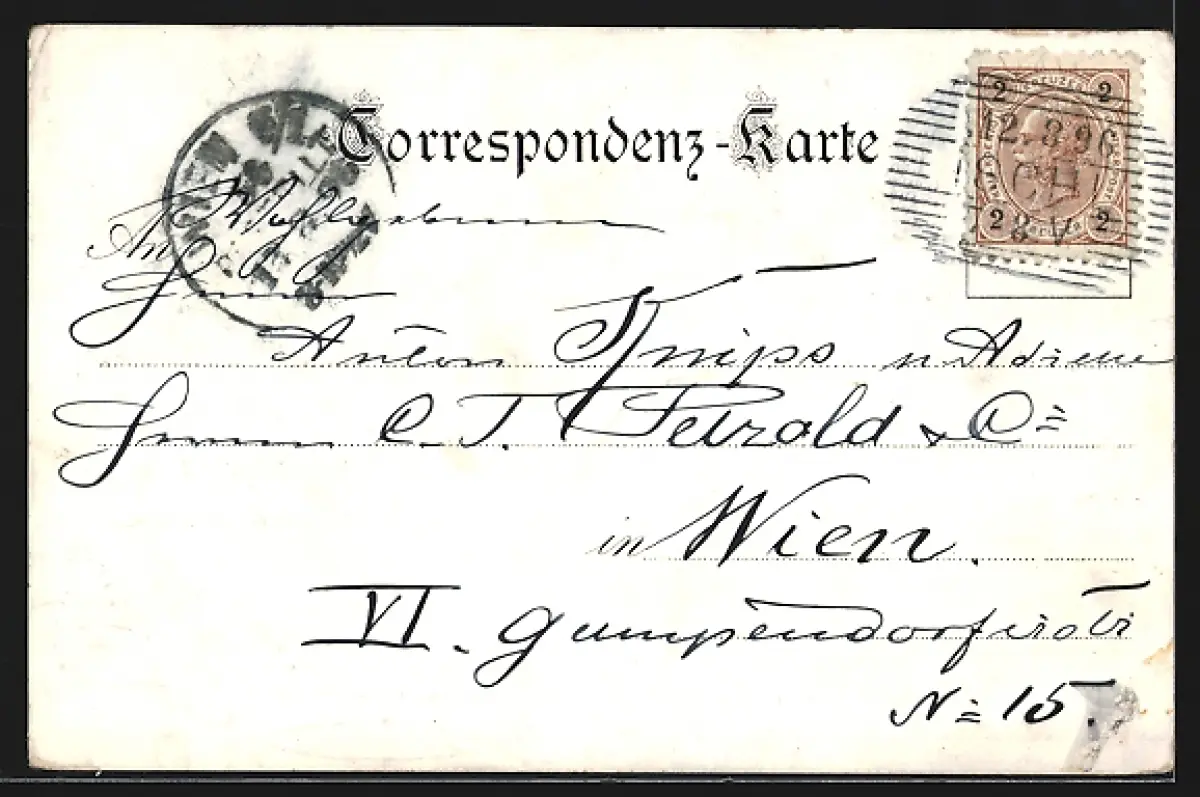 Correspondenz-Karte
2 KREUZER 2
12.8.96
8.V
2 2
An Wohlgeboren
Herrn
Anton Knips p. Adresse
Herren C. T. Petzold & Cie
in Wien.
VI. Gumpendorferstr
No 15.